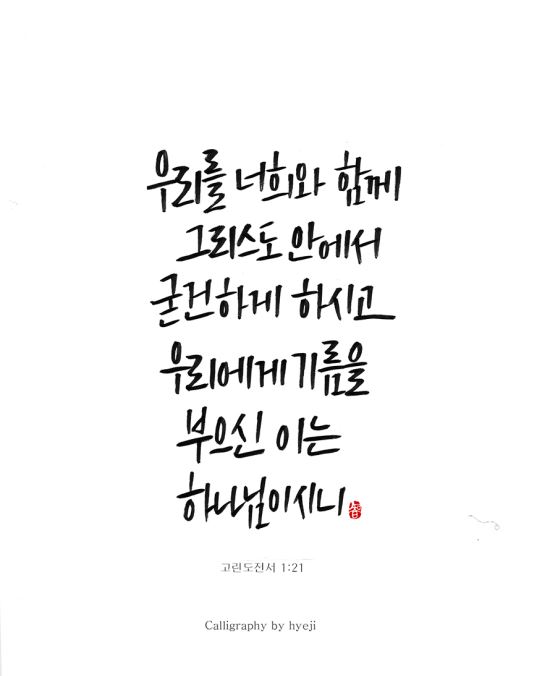 우리를 너희와 함께
그리스도 안에서
굳건하게 하시고
우리에게 기름을
부으신 이는
하나님이시니
고린도전서 1:21
Calligraphy by hyeji